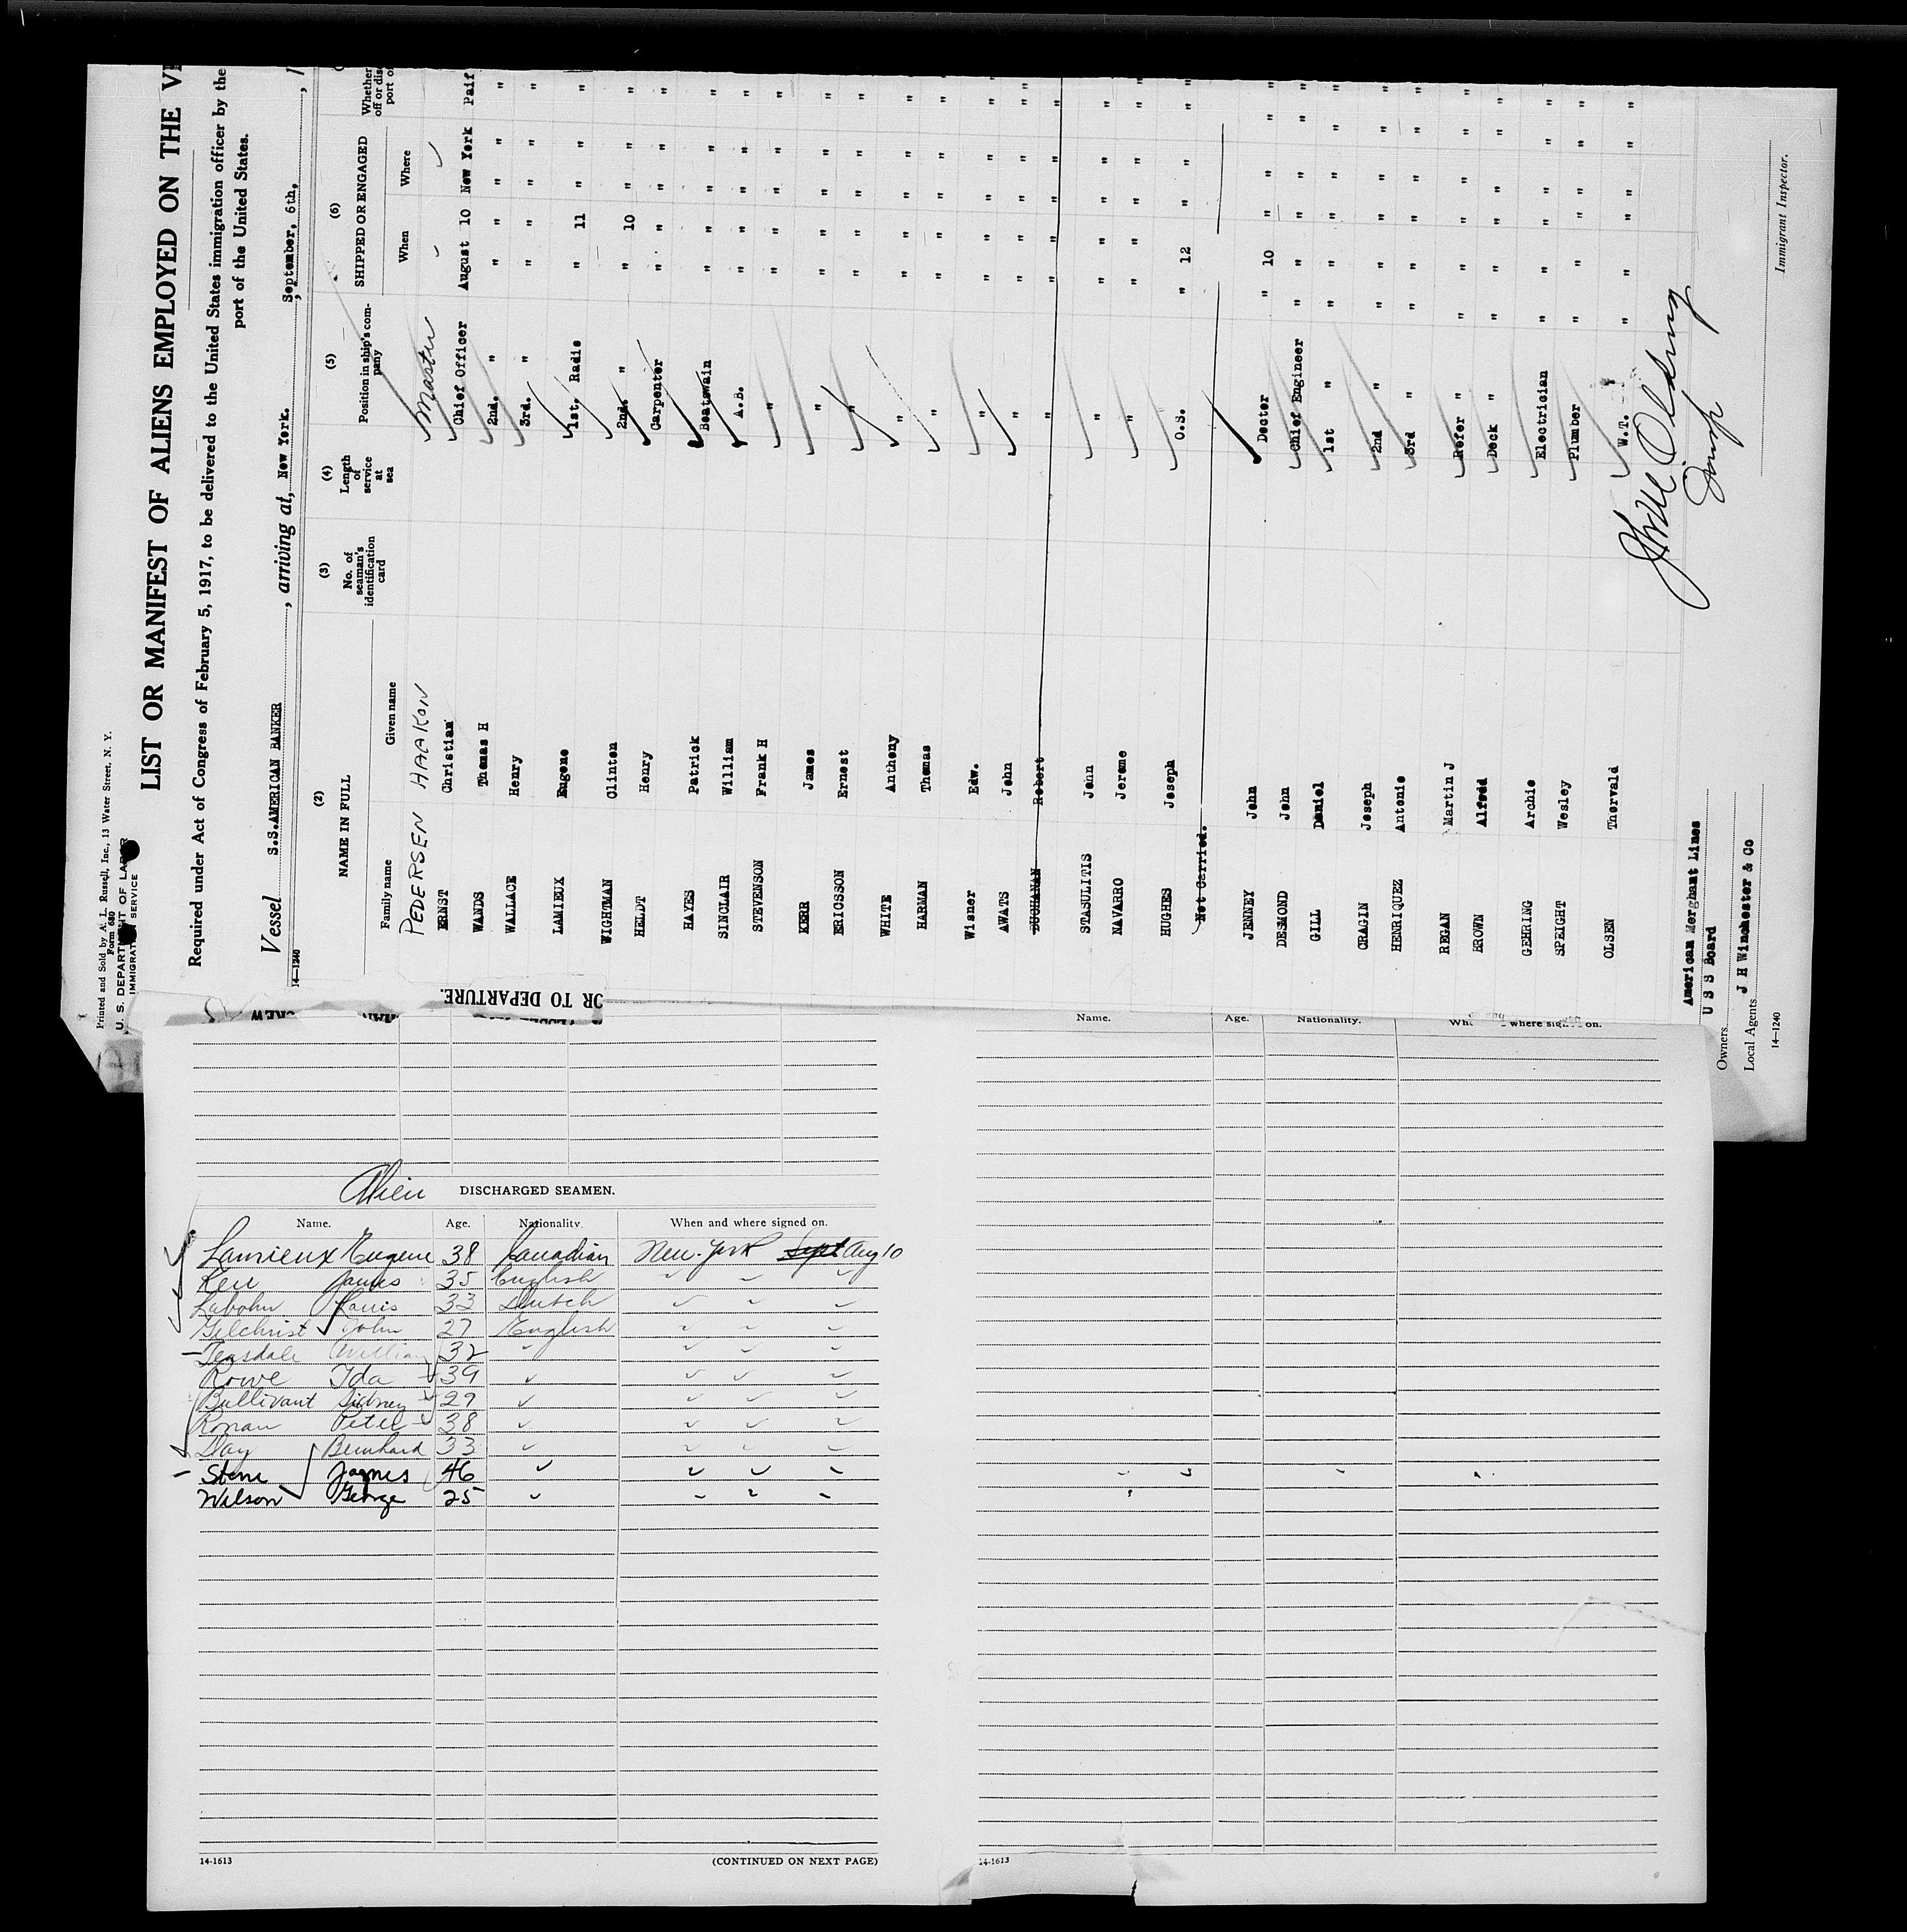 Printed and Sold by A. L. Russell, Inc., 13 Water Street, N. Y.
Form 680
U. S. DEPARTMENT OF LABOR
IMMIGRATION SERVICE
LIST OR MANIFEST OF ALIENS EMPLOYED ON THE
Required under Act of Congress of February 5, 1917, to be delivered to the United States immigration officer by the
port of the United States.
Vessel S.S.AMERICAN BANKER, arriving at, New York. September, 6th,
14—1240
(2) NAME IN FULL
Family name Given name
(3) No. of seaman's identification card
(4) Length of service at sea
(5) Position in ship's company
(6) SHIPPED OR ENGAGED
When Where
Whether
off or
port of
PEDERSEN HAAKON Master
ERNST Christian Chief Officer August 10 New York Paif
WANDS Thomas H 2nd. " " " " " "
WALLACE Henry 3rd. " " " " " "
LAMIEUX Eugene 1st. Radio " 11 " " "
WIGHTMAN Clinton 2nd. " " 10 " " "
HELDT Henry Carpenter " " " " "
HAYES Patrick Boatswain " " " " "
SINCLAIR William A.B. " " " " "
STEVENSON Frank H " " " " " "
KERR James " " " " " "
ERICSSON Ernest " " " " " "
WHITE Anthony " " " " " "
HARMAN Thomas " " " " " "
Wisner Edw. " " " " " "
AWATS John " " " " " "
BUCHANAN Robert " " " " " "
STASULITIS John " " " " " "
NAVARRO Jerome " " " " " "
HUGHES Joseph O.S. " 12 " " "
Not Carried.
JENNEY John Doctor " 10 " " "
DESMOND John Chief Engineer " " " " "
GILL Daniel 1st " " " " " "
CRAGIN Joseph 2nd " " " " " "
HENRIQUEZ Antonio 3rd " " " " " "
REGAN Martin J Refer " " " " " "
BROWN Alfred Deck " " " " " "
GEHRING Archie Electrician " " " " "
SPEIGHT Wesley Plumber " " " " "
OLSEN Thorvald W.T. " " " " "
American Merchant Lines
Owners U S S Board
Local Agents J H Winchester & Co
14—1240
Immigrant Inspector.
OR TO DEPARTURE.
CREW
Name. Age. Nationality. where signed on.
Alien DISCHARGED SEAMEN.
Name. Age. Nationality. When and where signed on.
Lamieux Eugene 38 Canadian New York Sept Aug 10
Kerr James 35 English
Labohn Louis 33 Dutch
Gilchrist John 27 English
Teasdale William 32
Rowe Ida 39
Bullivant Sidney 27
Ronan Peter 38
Day Bernhard 33
Stone James 46
Wilson George 25
14-1613 (CONTINUED ON NEXT PAGE)
14-1613